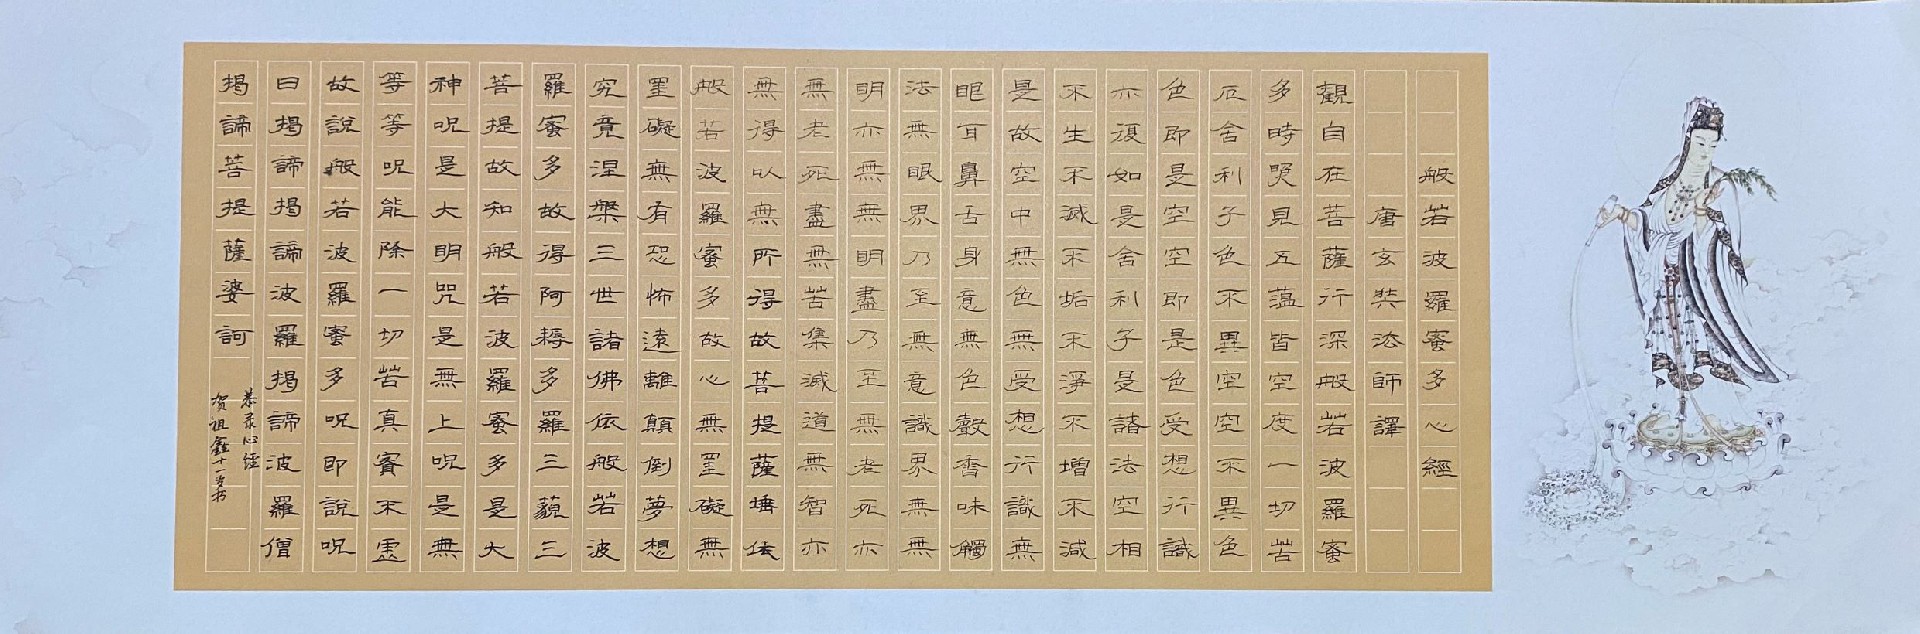 般若波羅蜜多心經
唐玄奘法師譯
觀自在菩薩行深般若波羅蜜
多時照見五蘊皆空度一切苦
厄舍利子色不異空空不異色
色即是空空即是色受想行識
亦復如是舍利子是諸法空相
不生不滅不垢不淨不增不減
是故空中無色無受想行識無
眼耳鼻舌身意無色聲香味觸
法無眼界乃至無意識界無無
明亦無無明盡乃至無老死亦
無老死盡無苦集滅道無智亦
無得以無所得故菩提薩埵依
般若波羅蜜多故心無罣礙無
罣礙無有恐怖遠離顛倒夢想
究竟涅槃三世諸佛依般若波
羅蜜多故得阿耨多羅三藐三
菩提故知般若波羅蜜多是大
神呪是大明咒是無上呪是無
等等呪能除一切苦真實不虛
故說般若波羅蜜多呪即說呪
曰揭諦揭諦波羅揭諦波羅僧
揭諦菩提薩婆訶
恭录心經
贺祖鑫十一岁书